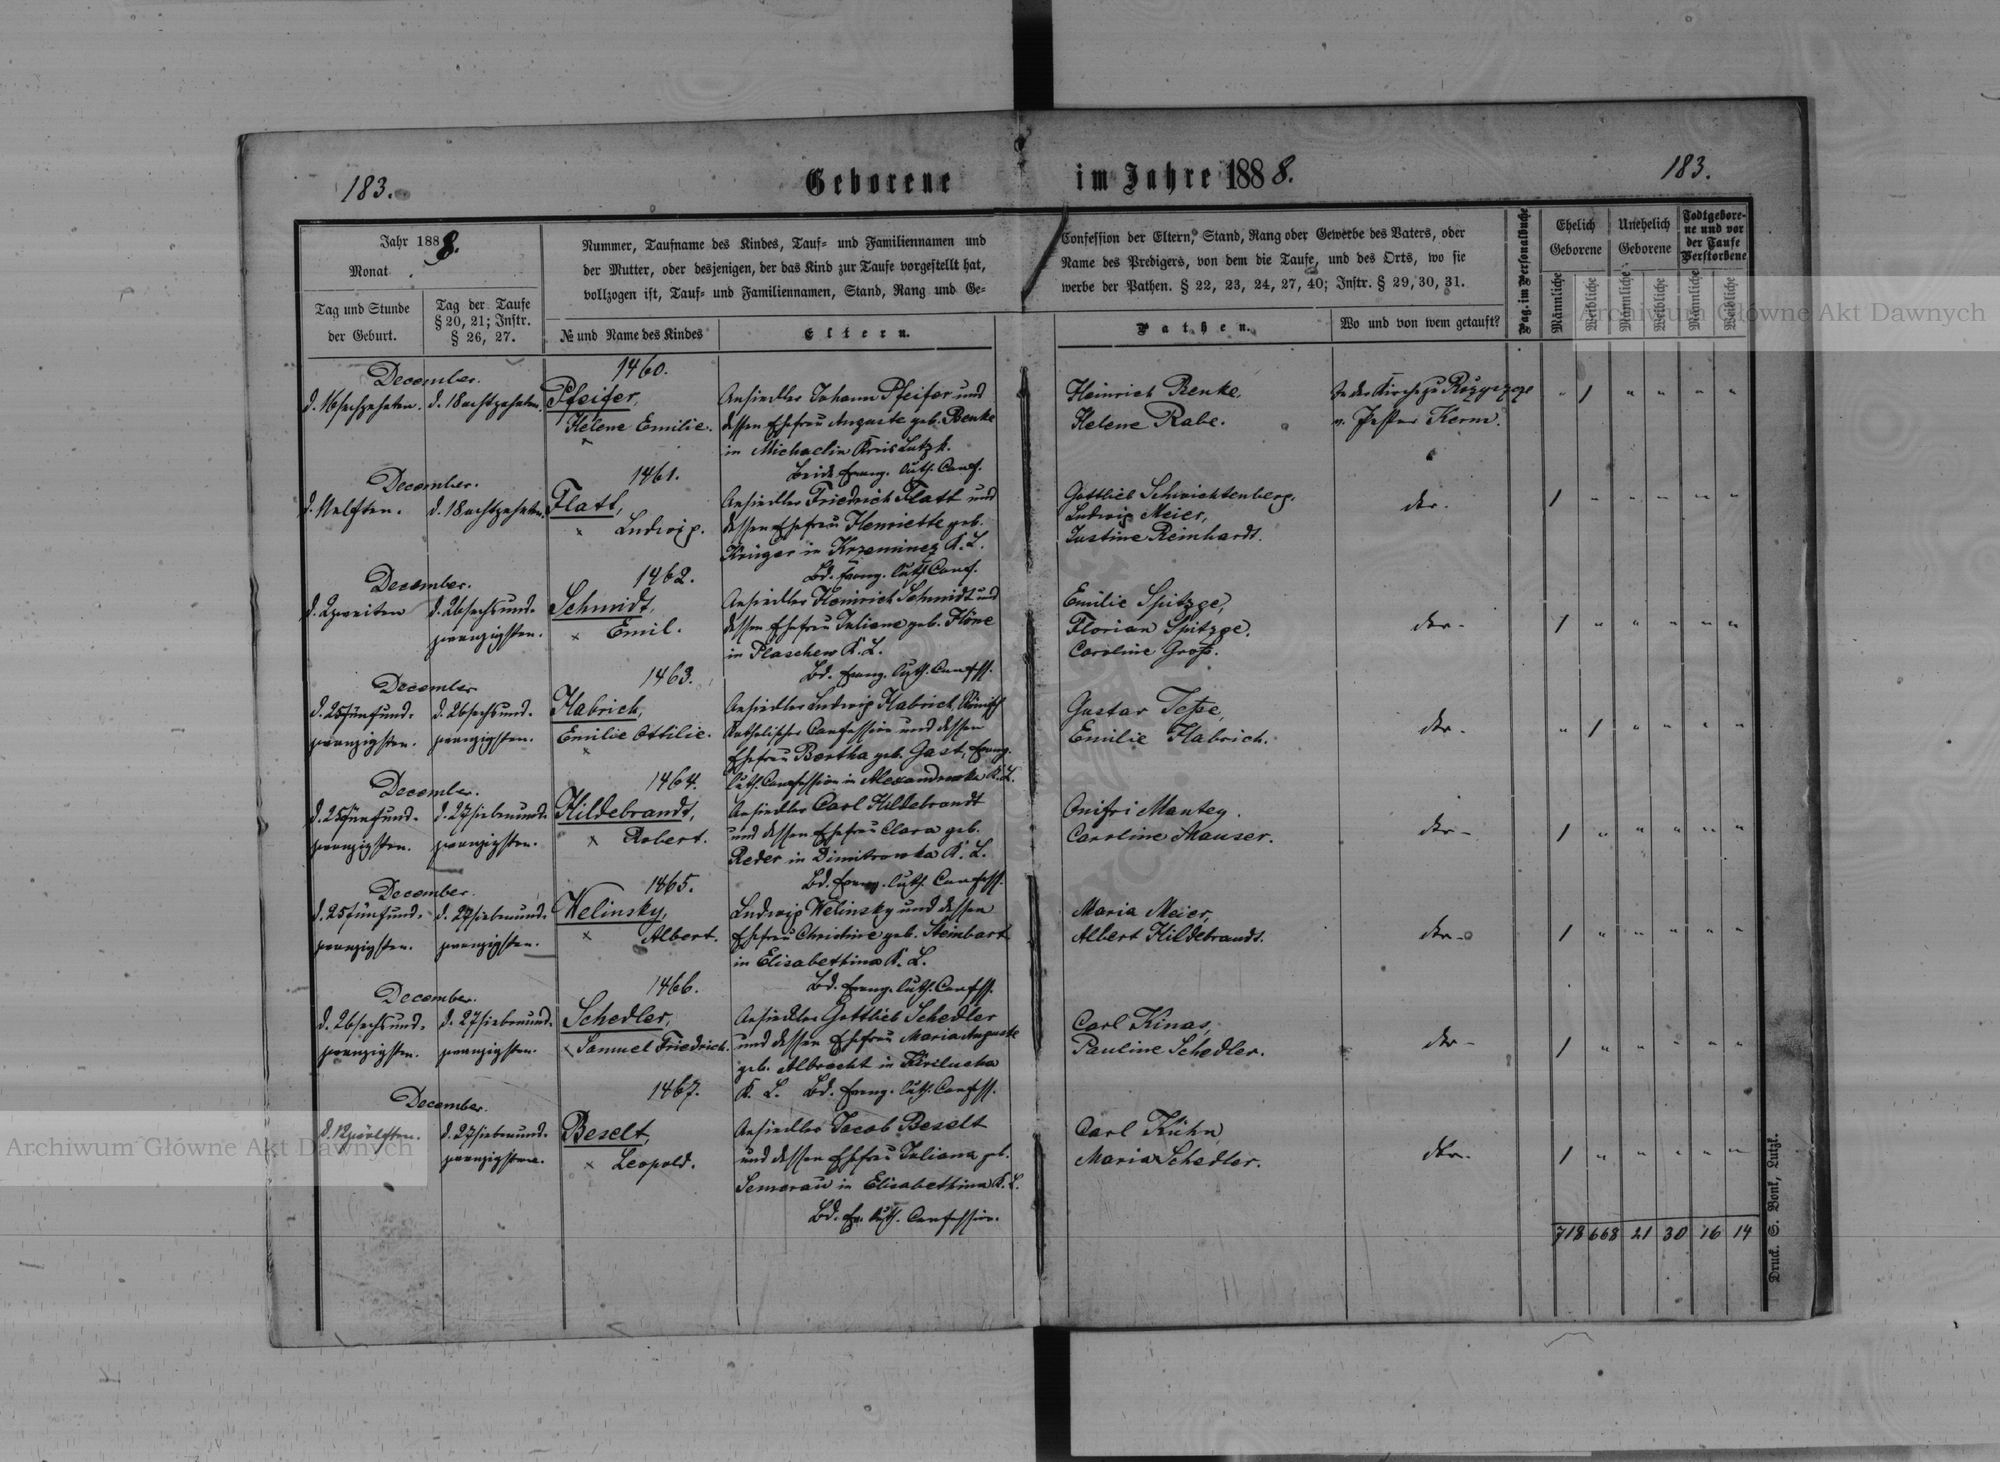 183.
Geborene im Jahre 1888.
183.
Jahr 1888.
Monat
Tag und Stunde
der Geburt.
Tag der Taufe
§ 20, 21; Instr.
§ 26, 27.
Nummer, Taufname des Kindes, Tauf- und Familiennamen und
der Mutter, oder desjenigen, der das Kind zur Taufe vorgestellt hat,
vollzogen ist, Tauf- und Familiennamen, Stand, Rang und Ge-
№ und Name des Kindes
Eltern.
Confession der Eltern, Stand, Rang oder Gewerbe des Vaters, oder
Name des Predigers, von dem die Taufe, und des Orts, wo sie
werbe der Pathen. § 22, 23, 24, 27, 40; Instr. § 29, 30, 31.
Pathen.
Wo und von wem getauft?
Pag. im Personalbuche
Ehelich
Geborene
Unehelich
Geborene
Todtgebore-
ne und vor
der Taufe
Verstorbene
Männliche
Weibliche
Männliche
Weibliche
Männliche
Weibliche
December.
d. 16 sechzehnten. d. 18 achtzehnten.
1460.
Pfeifer,
Helene Emilie.
Ansiedler Johann Pfeifer und
dessen Ehefrau Auguste geb. Benke
in Michaelin Kreis Lutzk.
Beide Evang. luth. Conf.
Heinrich Benke,
Helene Rabe.
In der Kirche zu Rożyszcze
v. Pastor Kerm.
" 1 " " " "
December.
d. 11 elften. d. 18 achtzehnten.
1461.
Flatt,
Ludwig.
Ansiedler Friedrich Flatt und
dessen Ehefrau Henriette geb.
Krüger in Krzeminez K. L.
Bd. Evang. luth Conf.
Gottlieb Schwichtenberg,
Ludwig Meier,
Justine Reinhardt.
dto.
1 " " " " "
December.
d. 2 zweiten
d. 26 sechsund-
zwanzigsten.
1462.
Schmidt,
Emil.
Ansiedler Heinrich Schmidt und
dessen Ehefrau Juliane geb. Höne
in Plaschew K. L.
Bd. Evang. luth. Confess.
Emilie Spitzge,
Florian Spitzge.
Caroline Groß.
dto-
1 " " " " "
December
d. 25 fünfund-
zwanzigsten.
d. 26 sechsund-
zwanzigsten.
1463.
Habrich,
Emilie Ottilie.
Ansiedler Ludwig Habrich, Römisch
Katholischer Confession und dessen
Ehefrau Bertha geb. Gast, Evang.
luth. Confession in Alexandrowka K. L.
Gustav Teße,
Emilie Habrich.
dto-
" 1 " " " "
December.
d. 25 fünfund-
zwanzigsten.
d. 27 siebenund-
zwanzigsten.
1464.
Hildebrandt,
Robert.
Ansiedler Carl Hildebrandt
und dessen Ehefrau Clara geb.
Reder in Dimitrowka K. L.
Bd. Evang. luth. Confess.
Onifri Mantey.
Caroline Mauser.
dto-
1 " " " " "
December.
d. 25 fünfund-
zwanzigsten.
d. 27 siebenund-
zwanzigsten.
1465.
Welinsky,
Albert.
Ludwig Welinsky und dessen
Ehefrau Christine geb. Steinbart
in Elisabethina K. L.
Bd. Evang. luth. Confess.
Maria Meier,
Albert Hildebrandt.
dto-
1 " " " " "
December.
d. 26 sechsund-
zwanzigsten.
d. 27 siebenund-
zwanzigsten.
1466.
Schedler,
Samuel Friedrich.
Ansiedler Gottlieb Schedler
und dessen Ehefrau Maria Auguste
geb. Albrecht in
K. L. Bd. Evang. luth. Confess.
Carl Kinas,
Pauline Schedler.
dto-
1 " " " " "
December.
d. 12 zwölften.
d. 27 siebenund-
zwanzigsten.
1467.
Beselt,
Leopold.
Ansiedler Jacob Beselt
und dessen Ehefrau Juliana geb.
Semerau in Elisabethina K. L.
Bd. Ev. luth. Confession.
Carl Kühn,
Maria Schedler.
dto-
1 " " " " "
718 668 21 30 16 14
Druck. S. Bonk, Lutzk.
Archiwum Główne Akt Dawnych
Archiwum Główne Akt Dawnych